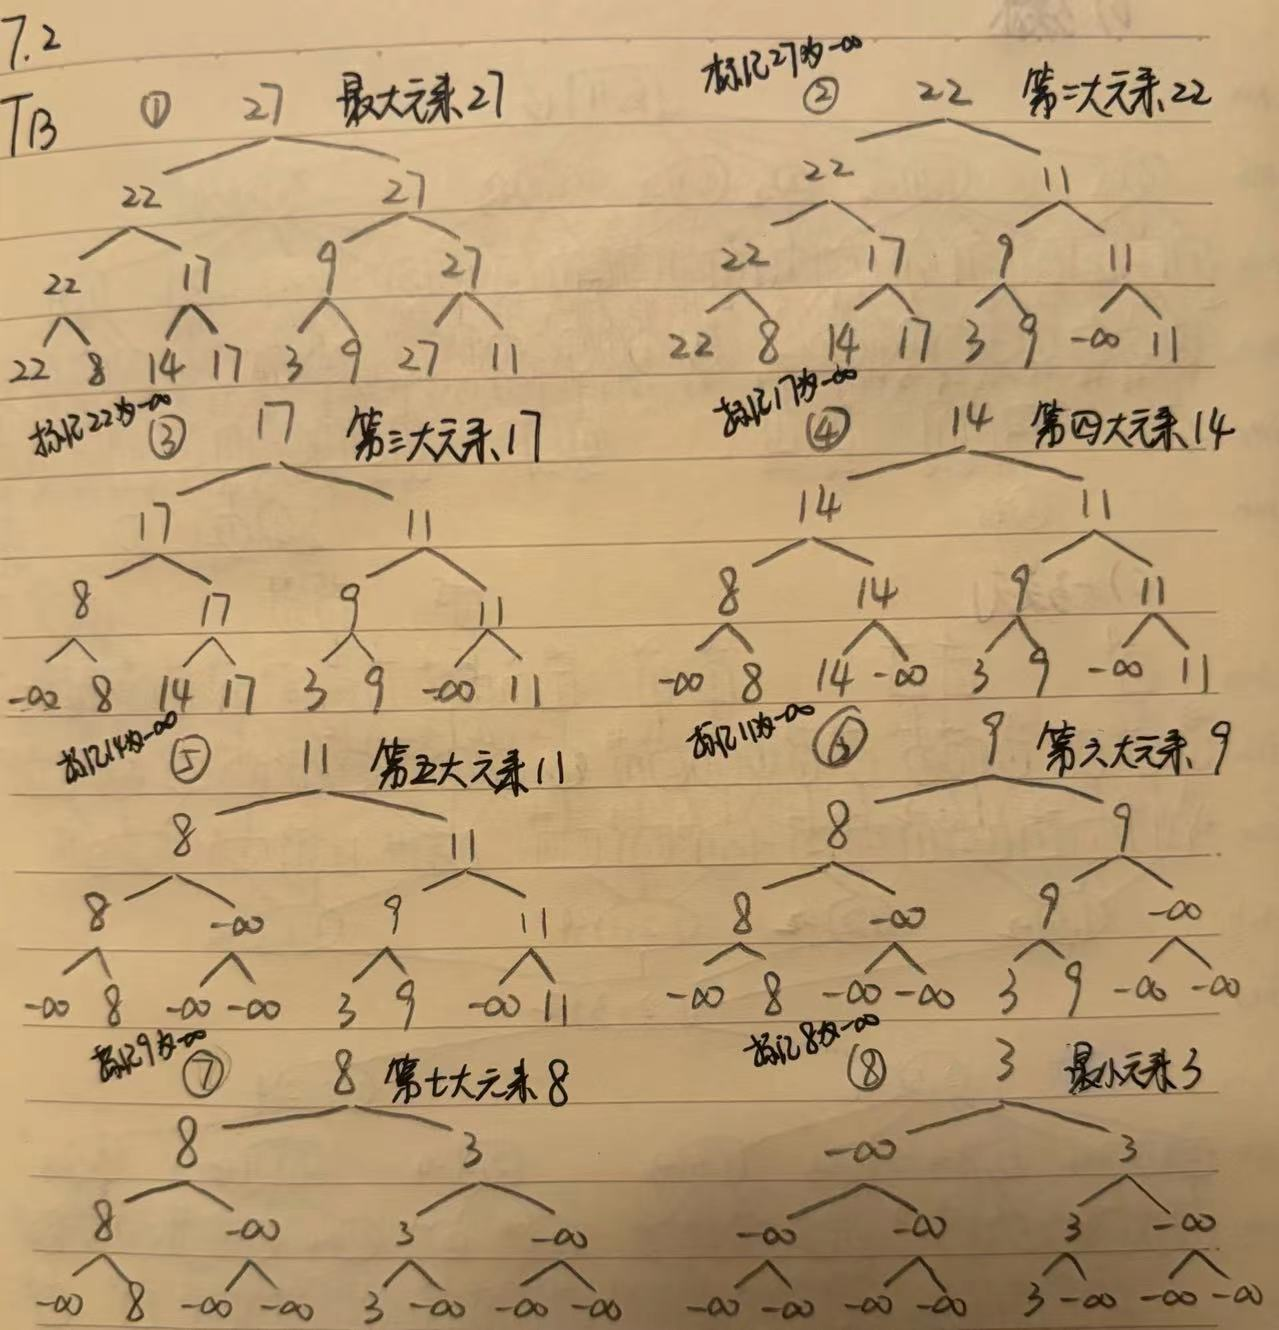 7.2
T13
① 27 最大元素27
22 27
22 17 9 27
22 8 14 17 3 9 27 11
标记27为-∞
② 22 第二大元素22
22 11
22 17 9 11
22 8 14 17 3 9 -∞ 11
标记22为-∞
③ 17 第三大元素17
17 11
8 17 9 11
-∞ 8 14 17 3 9 -∞ 11
标记17为-∞
④ 14 第四大元素14
14 11
8 14 9 11
-∞ 8 14 -∞ 3 9 -∞ 11
标记14为-∞
⑤ 11 第五大元素11
8 11
8 -∞ 9 11
-∞ 8 -∞ -∞ 3 9 -∞ 11
标记11为-∞
⑥ 9 第六大元素9
8 9
8 -∞ 9 -∞
-∞ 8 -∞ -∞ 3 9 -∞ -∞
标记9为-∞
⑦ 8 第七大元素8
8 3
8 -∞ 3 -∞
-∞ 8 -∞ -∞ 3 -∞ -∞ -∞
标记8为-∞
⑧ 3 最小元素3
-∞ 3
-∞ -∞ 3 -∞
-∞ -∞ -∞ -∞ 3 -∞ -∞ -∞